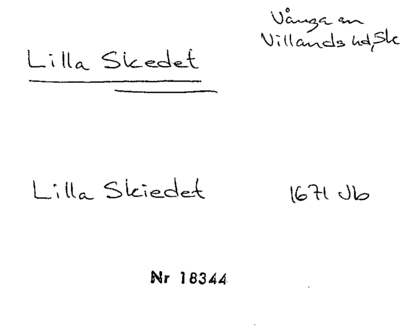 Vånga sn
Villands hd, Sk
Lilla Skedet
Lilla Skiedet 1671 Jb
Nr 18344